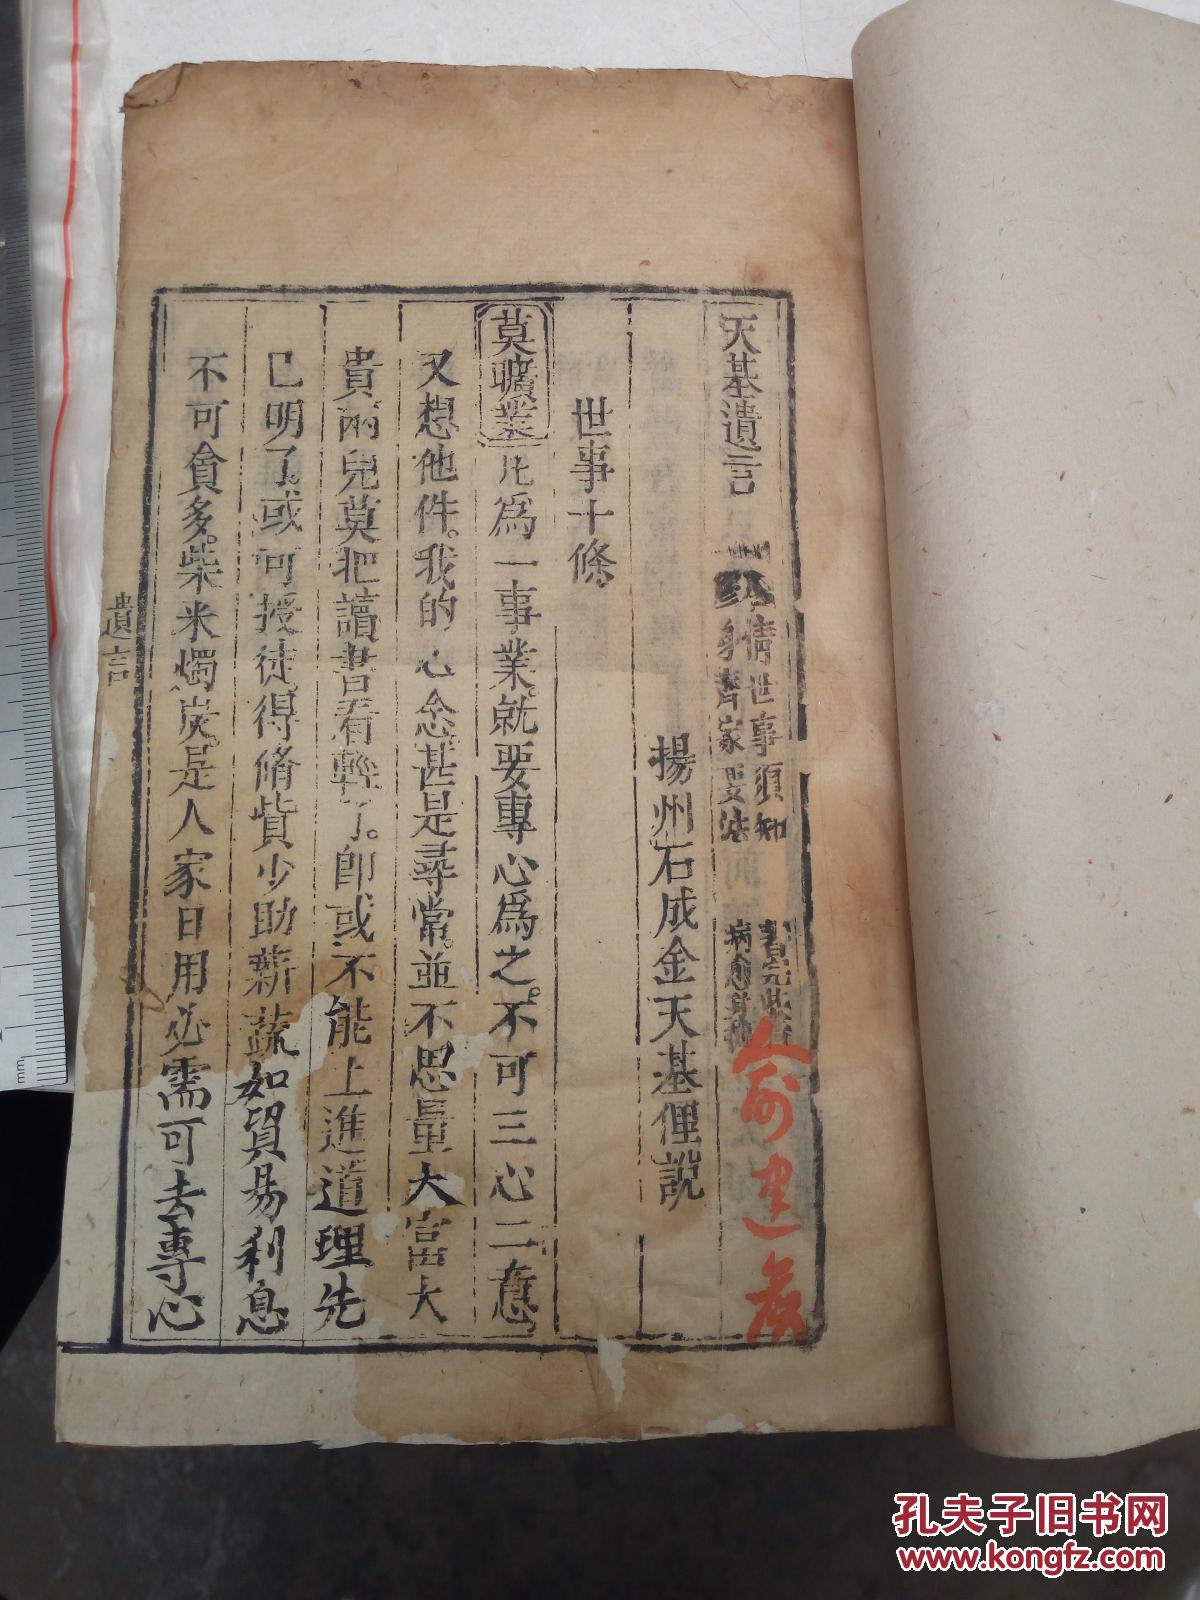 天基遺言
情世事須知
身齊家要法
病愈
揚州石成金天基俚說
世事十條
莫曠業凡爲一事業就要專心爲之不可三心二意
又想他件我的心念甚是尋常並不思量大富大
貴兩兒莫把讀書看輕了即或不能上進道理先
已明了或可授徒得脩貲少助薪蔬如貿易利息
不可貪多柴米燭炭是人家日用必需可去專心
遺言
俞建
mm
孔夫子旧书网
www.kongfz.com